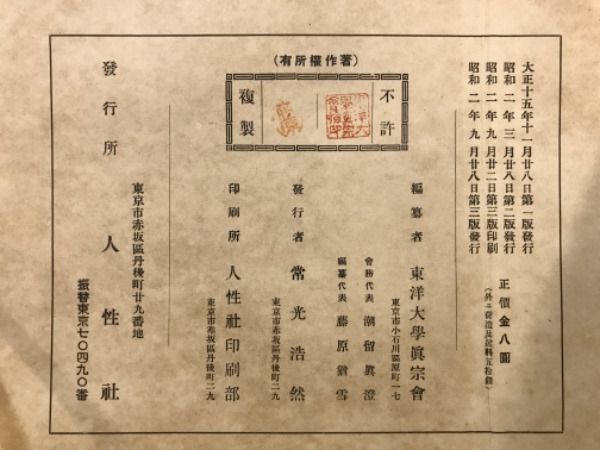 大正十五年十一月廿八日第一版發行
昭和二年三月廿八日第二版發行
昭和二年九月廿二日第三版印刷
昭和二年九月廿八日第三版發行
正價金八圓
(著作權所有)
不許
複製
編纂者
東洋大學眞宗會
東京市小石川區原町一七
會務代表 潮留眞澄
編纂代表 藤原猶雪
發行者 常光浩然
東京市赤坂區丹後町二九
印刷所 人性社印刷部
東京市赤坂區丹後町二九
東京市赤坂區丹後町廿九番地
發行所 人性社
振替東京七〇四九〇番